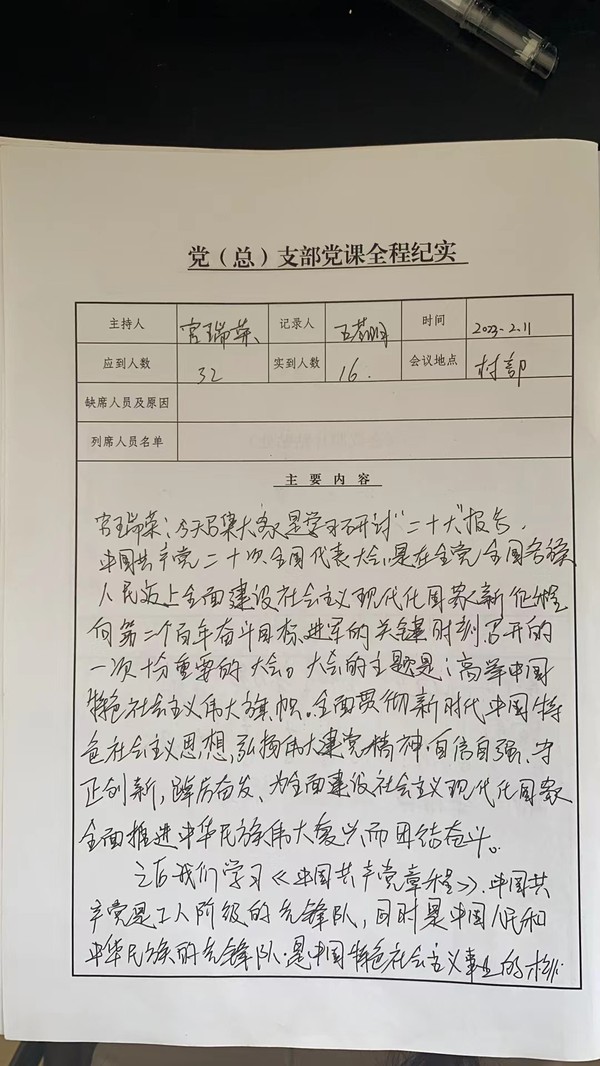 党（总）支部党课全程纪实
主持人 宫瑞荣 记录人 时间 2023-2.11
应到人数 32 实到人数 16. 会议地点 村部
缺席人员及原因
列席人员名单
主要内容
宫瑞荣：今天召集大家是学习研讨“二十大”报告.
中国共产党二十次全国代表大会,是在全党全国各族
人民迈上全面建设社会主义现代化国家新征程
向第二个百年奋斗目标进军的关键时刻召开的
一次十分重要的大会。大会的主题是：高举中国
特色社会主义伟大旗帜。全面贯彻新时代中国特
色社会主义思想,弘扬伟大建党精神,自信自强、守
正创新,踔厉奋发、为全面建设社会主义现代化国家
全面推进中华民族伟大复兴而团结奋斗。
之后我们学习《中国共产党章程》.中国共
产党是工人阶级的先锋队,同时是中国人民和
中华民族的先锋队.是中国特色社会主义事业的